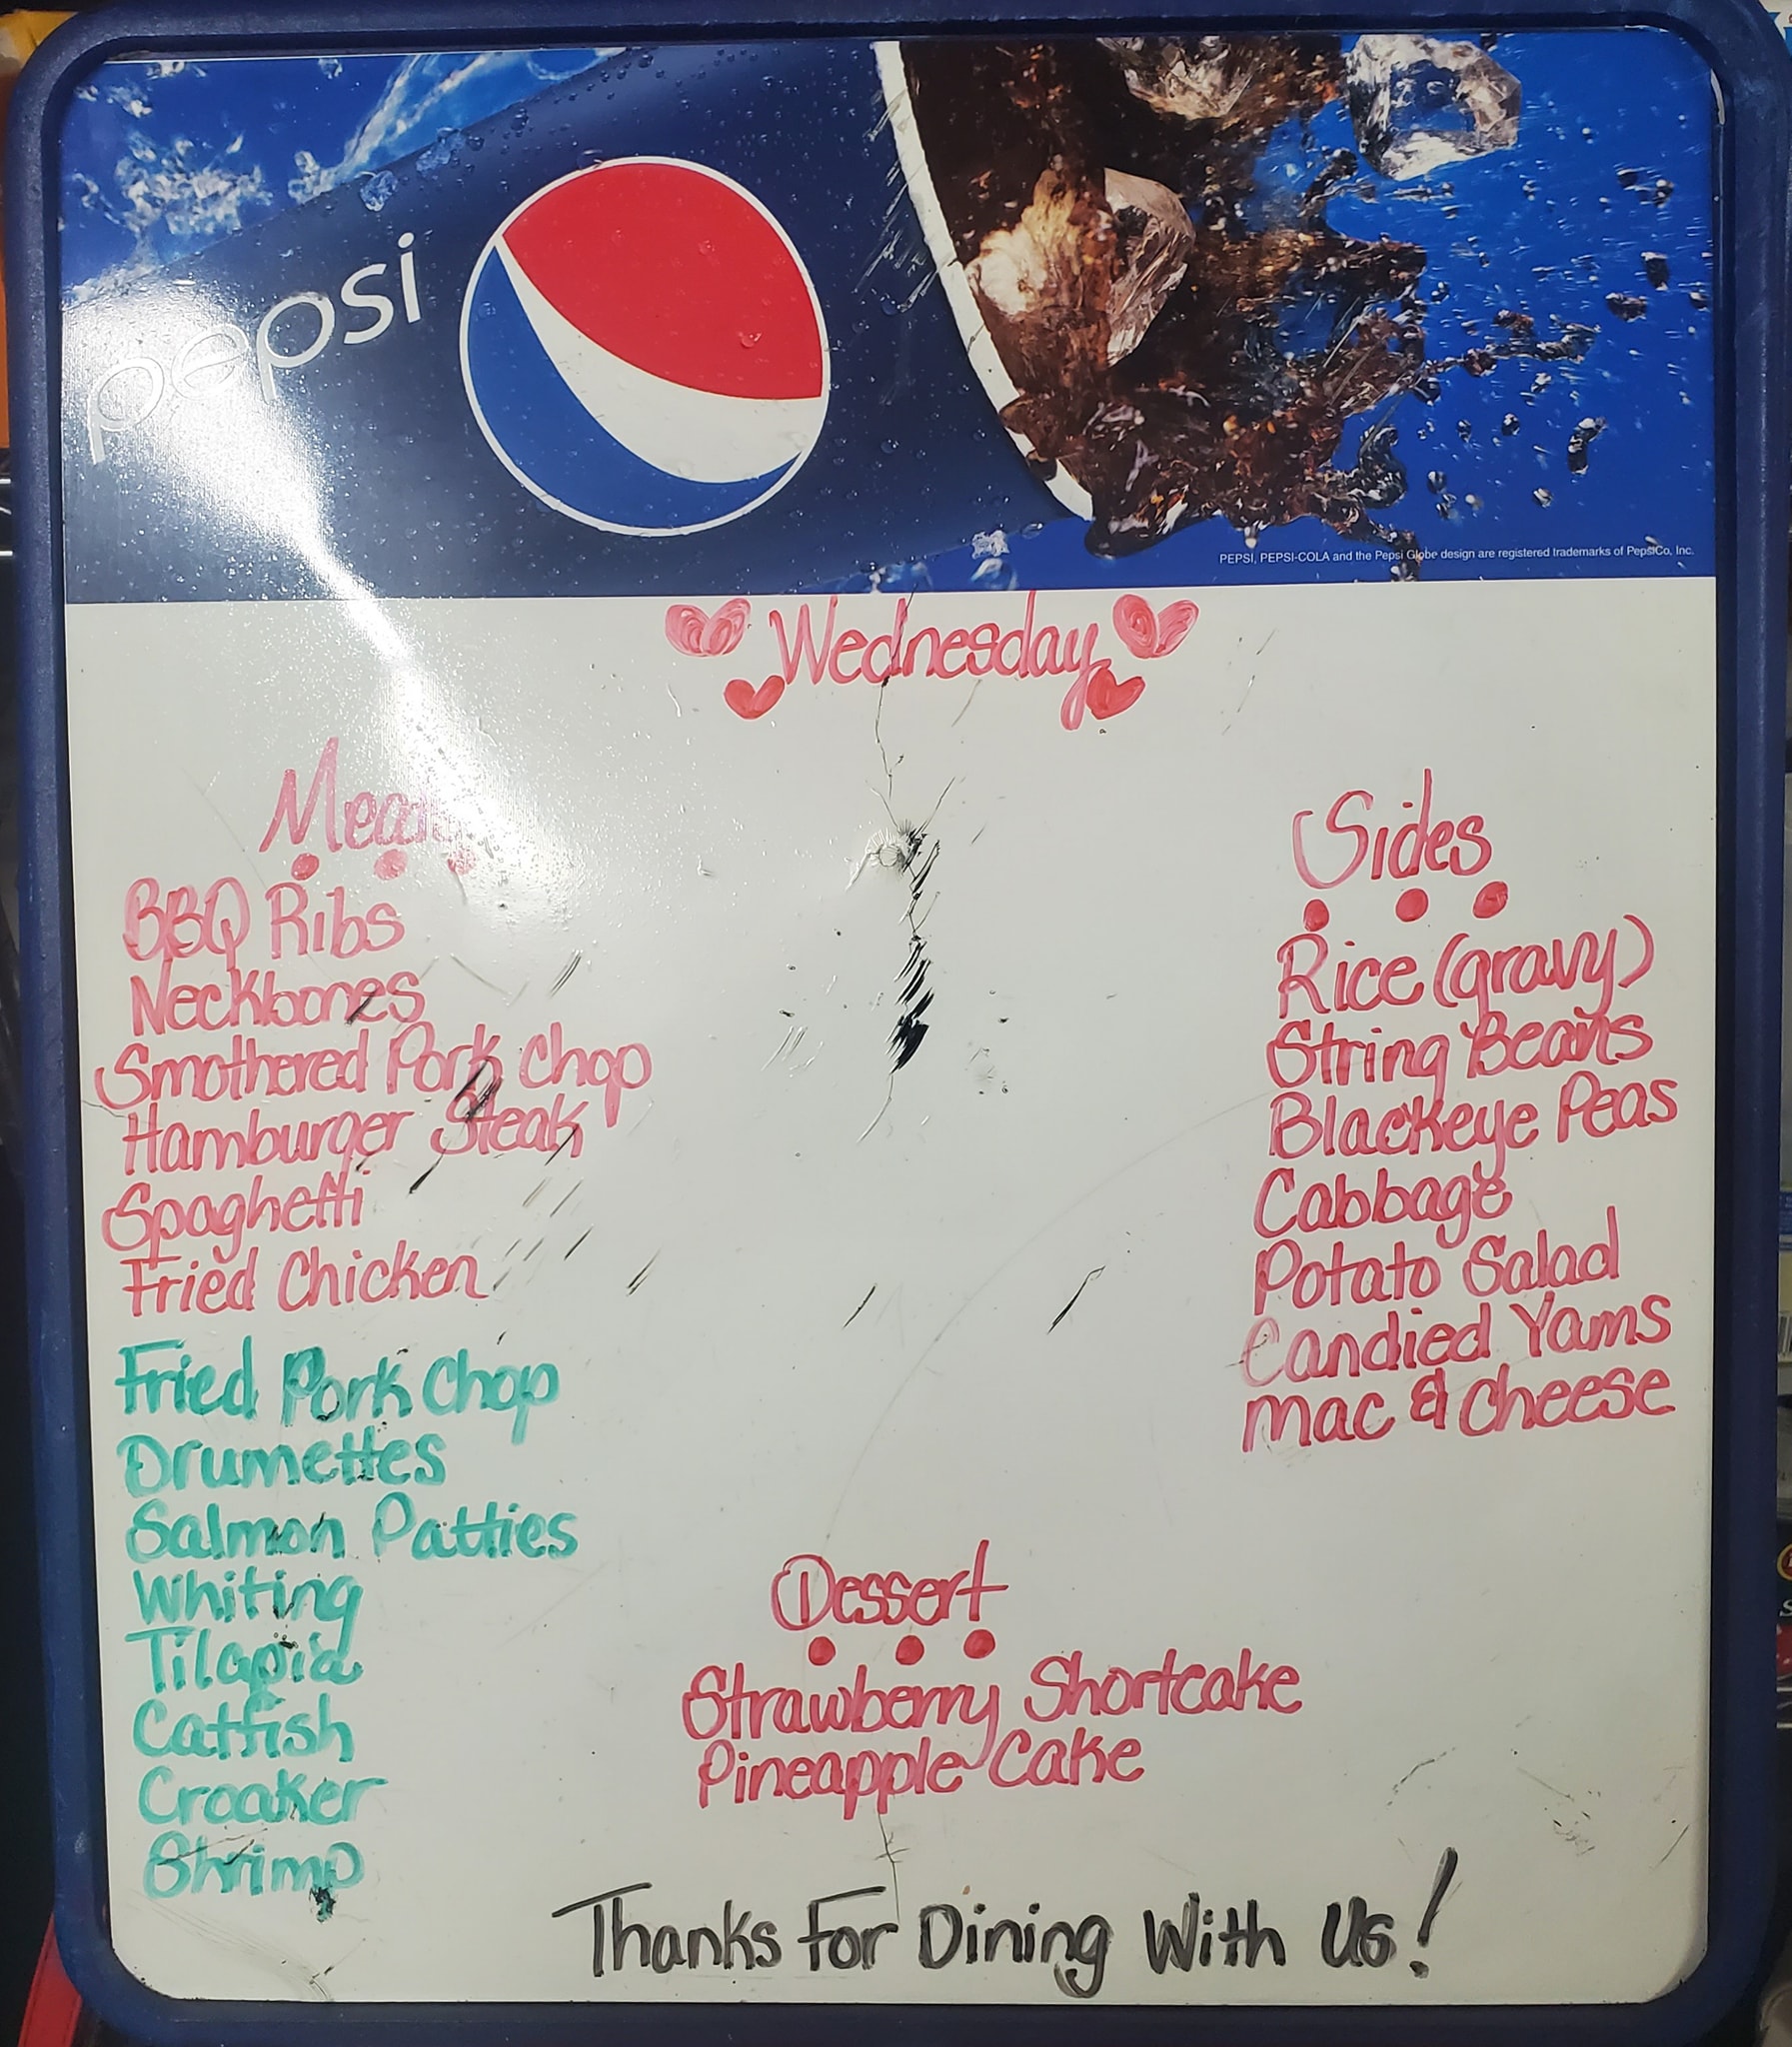 pepsi
PEPSI, PEPSI-COLA and the Pepsi Globe design are registered trademarks of PepsiCo, Inc.
Wednesday
Meats
BBQ Ribs
Neckbones
Smothered Pork Chop
Hamburger Steak
Spaghetti
Fried Chicken
Fried Pork Chop
Drumettes
Salmon Patties
Whiting
Tilapia
Catfish
Croaker
Shrimp
Sides
Rice (gravy)
String Beans
Blackeye Peas
Cabbage
Potato Salad
Candied Yams
Mac & Cheese
Dessert
Strawberry Shortcake
Pineapple Cake
Thanks For Dining With Us!